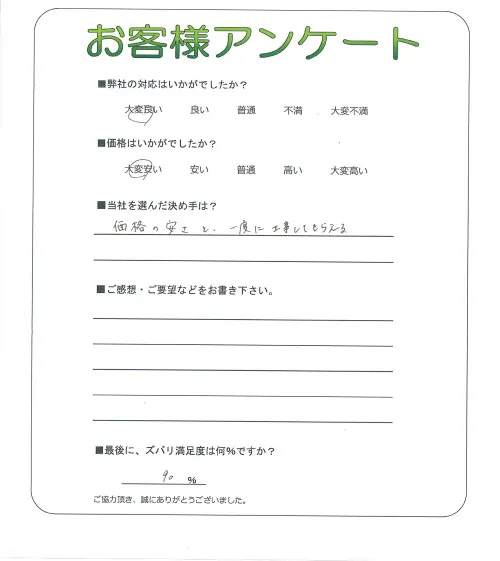 お客様アンケート
■弊社の対応はいかがでしたか？
大変良い 良い 普通 不満 大変不満
■価格はいかがでしたか？
大変安い 安い 普通 高い 大変高い
■当社を選んだ決め手は？
価格の安さと、一度に工事してもらえる
■ご感想・ご要望などをお書き下さい。
■最後に、ズバリ満足度は何％ですか？
90 ％
ご協力頂き、誠にありがとうございました。